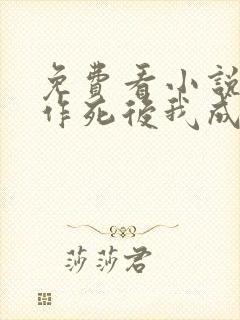 免費看小說
作死後我成
莎莎君